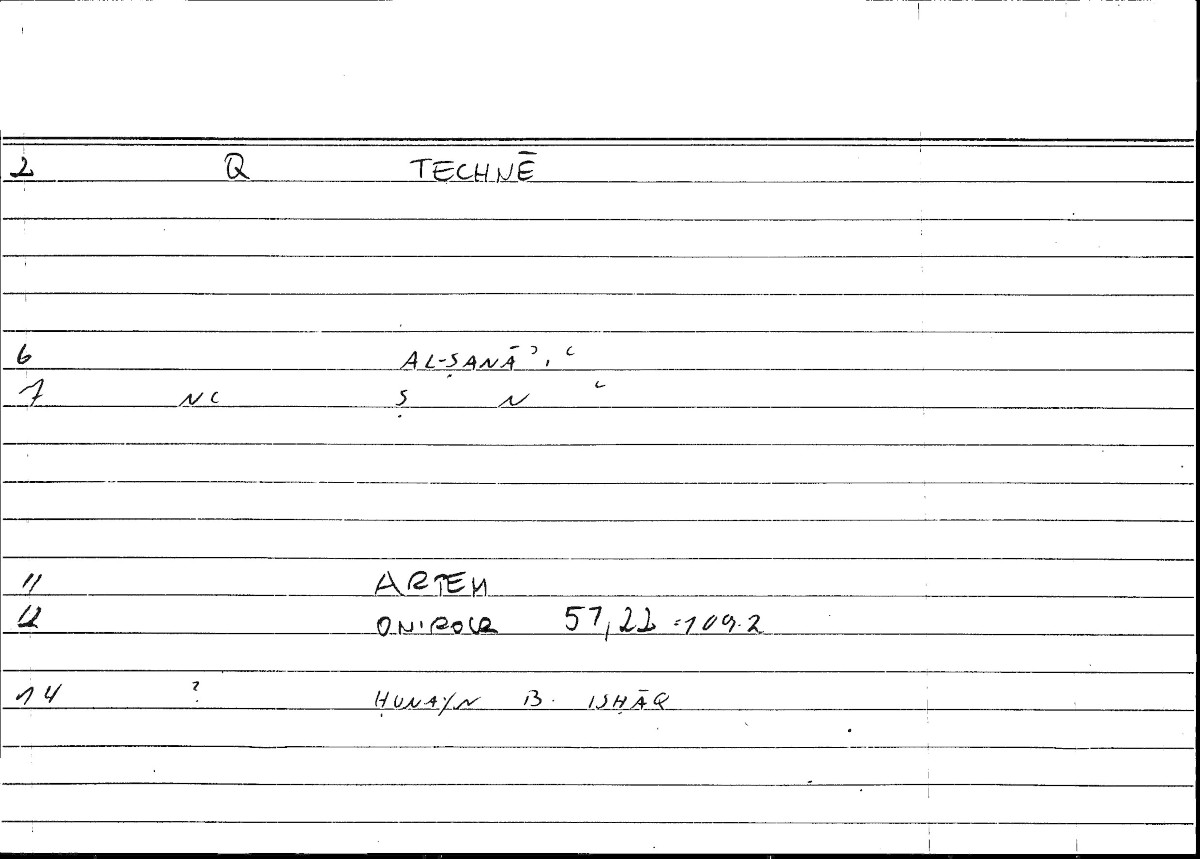 2 Q TECHNĒ
6 AL-ṢANĀʾiʿ
7 NC Ṣ N ʿ
11 ARTEM
12 ONIROCR 57,22 = 109.2
14 ? ḤUNAYN B. ISḤĀQ